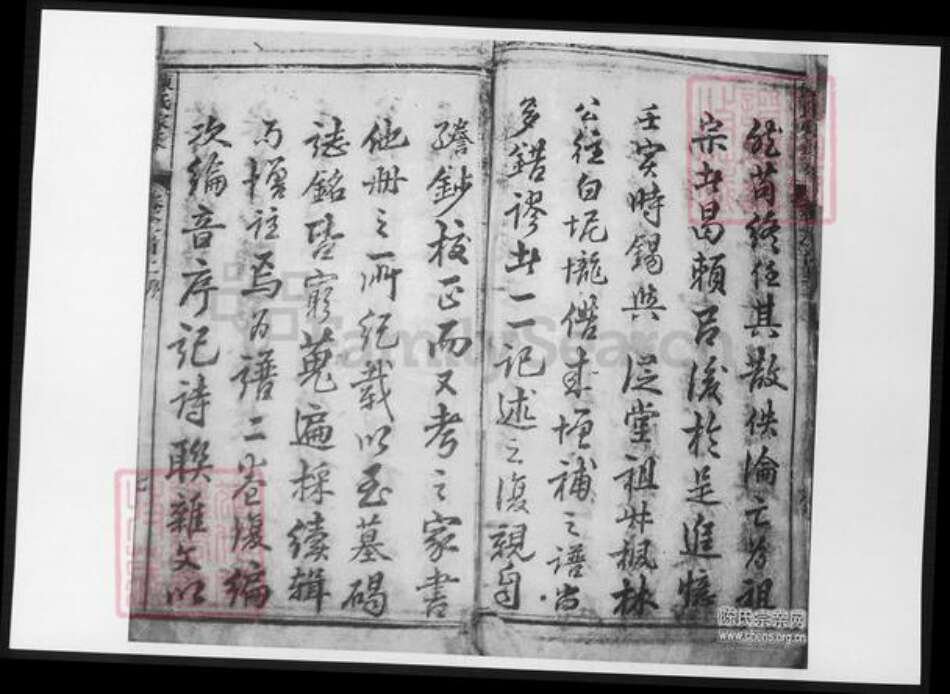 能苟終任其散佚淪亡為祖
宗此昌賴呂後於是進
壬寅時錫與從堂祖 楓林
公往白坭 借來增補之譜尚
多錯謬此一一記述之復親自
謄鈔校正而又考之家書
他冊之所紀載以至墓碣
誌銘皆窮蒐遍採續輯
而增註焉為譜二卷復編
次綸音序記詩聯雜文以
陳氏家乘
FamilySearch
陈氏宗亲网
www.chens.org.cn